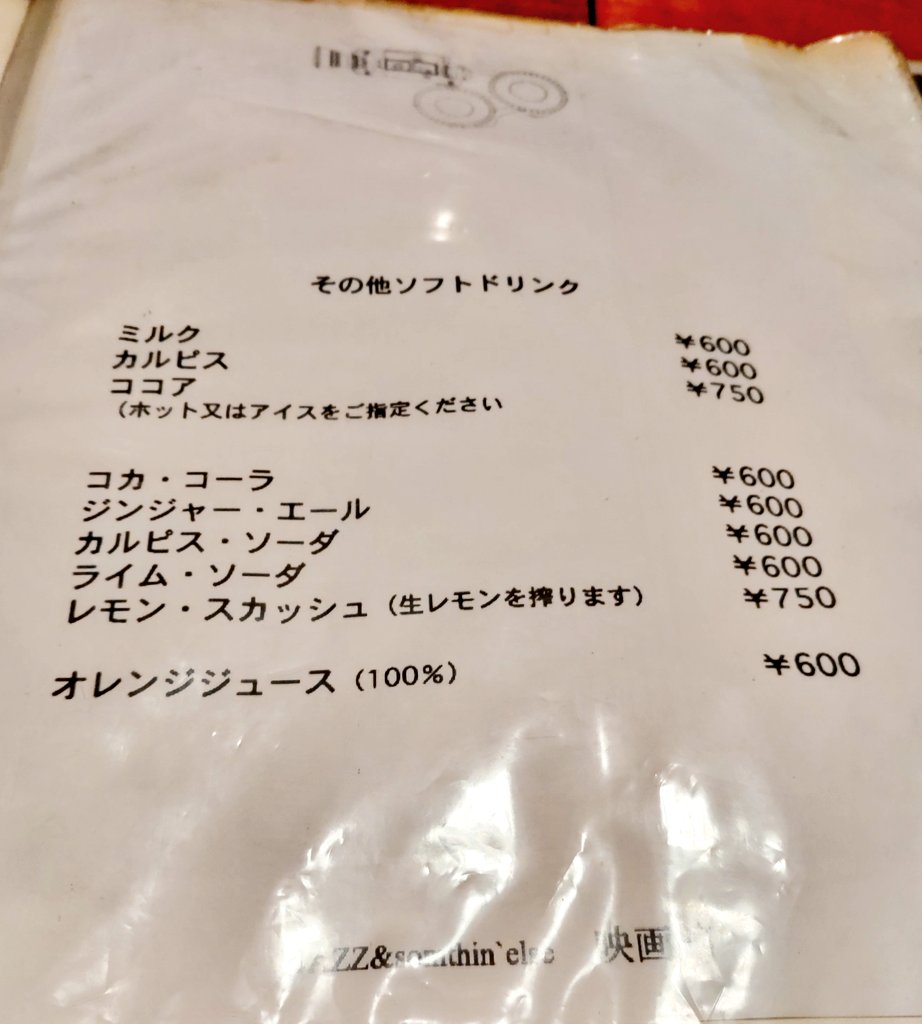 その他ソフトドリンク
ミルク ¥600
カルピス ¥600
ココア ¥750
（ホット又はアイスをご指定ください
コカ・コーラ ¥600
ジンジャー・エール ¥600
カルピス・ソーダ ¥600
ライム・ソーダ ¥600
レモン・スカッシュ（生レモンを搾ります） ¥750
オレンジジュース（100%） ¥600
JAZZ&somthin`else 映画